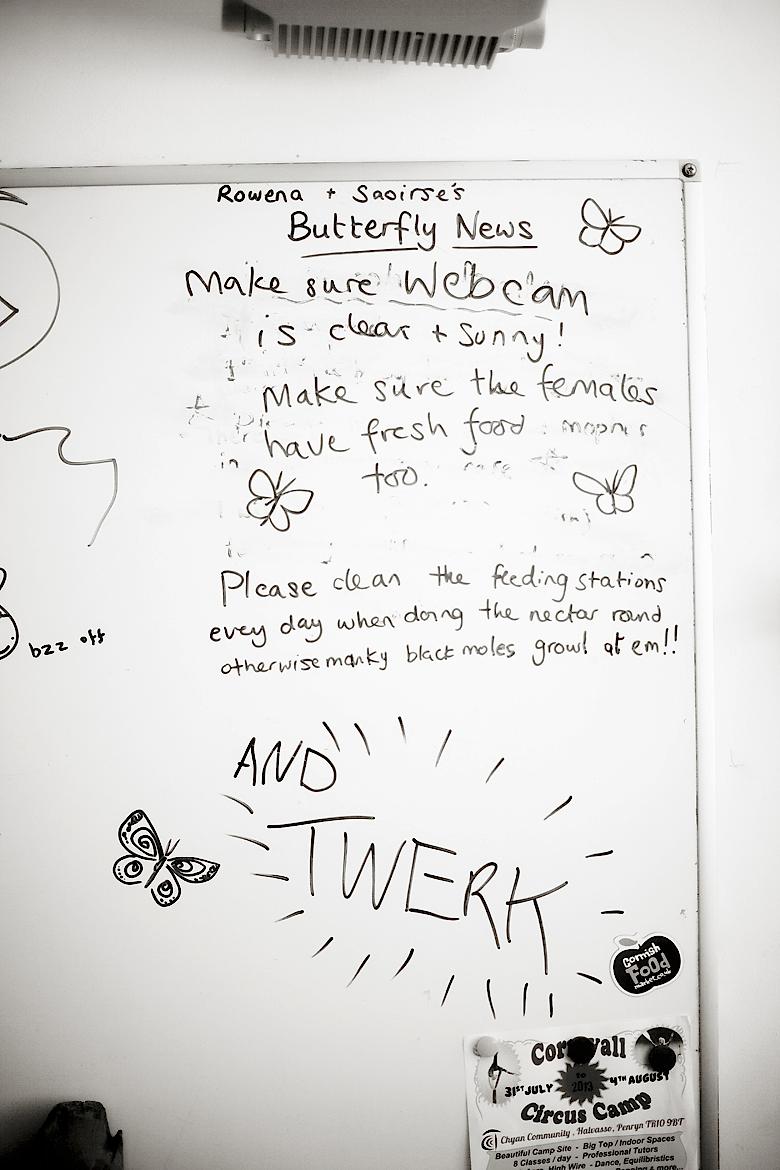 Rowena + Saoirse's
Butterfly News
Make sure Webcam
is clear + Sunny!
Make sure the females
have fresh food
too.
Please clean the feeding stations
every day when doing the nectar round
otherwise manky black moles growl at em!!
bzz off
AND
TWERK
Cornish
Food
market.co.uk
Cornwall
31ST JULY TO 4TH AUGUST
2013
Circus Camp
Chyan Community . Halvasso, Penryn TR10 9BT
Beautiful Camp Site - Big Top / Indoor Spaces
8 Classes / day - Professional Tutors
High Wire - Dance, Equilibristics